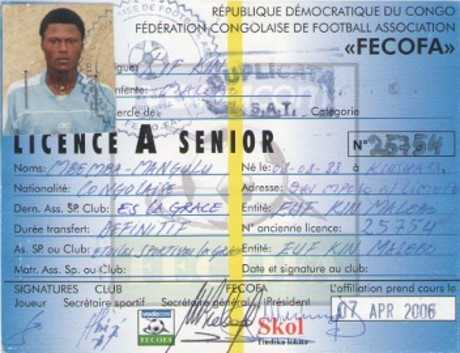 RÉPUBLIQUE DÉMOCRATIQUE DU CONGO
FÉDÉRATION CONGOLAISE DE FOOTBALL ASSOCIATION
«FECOFA»
DUPLICATA
S.A.T.
Catégorie
LICENCE A SENIOR N° 25754
Noms: MBEMBA-MANGULU Né le: 08-08-88 à KINSHASA
Nationalité: CONGOLAISE Adresse:
Dern. Ass. SP. Club: ES LA GRACE Entité: EUF KIN MALEBO
Durée transfert: DEFINITIF N° ancienne licence: 25754
As. SP. ou Club: ETOILES SPORTIVES LA GRACE Entité: EUF KIN MALEBO
Matr. Ass. Sp. ou Club: Date et signature au club:
SIGNATURES CLUB FECOFA L'affiliation prend cours le
Joueur Secrétaire sportif Secrétaire général Président
07 APR 2006
vodacom
FECOFA
Skol
Lisdika lokito